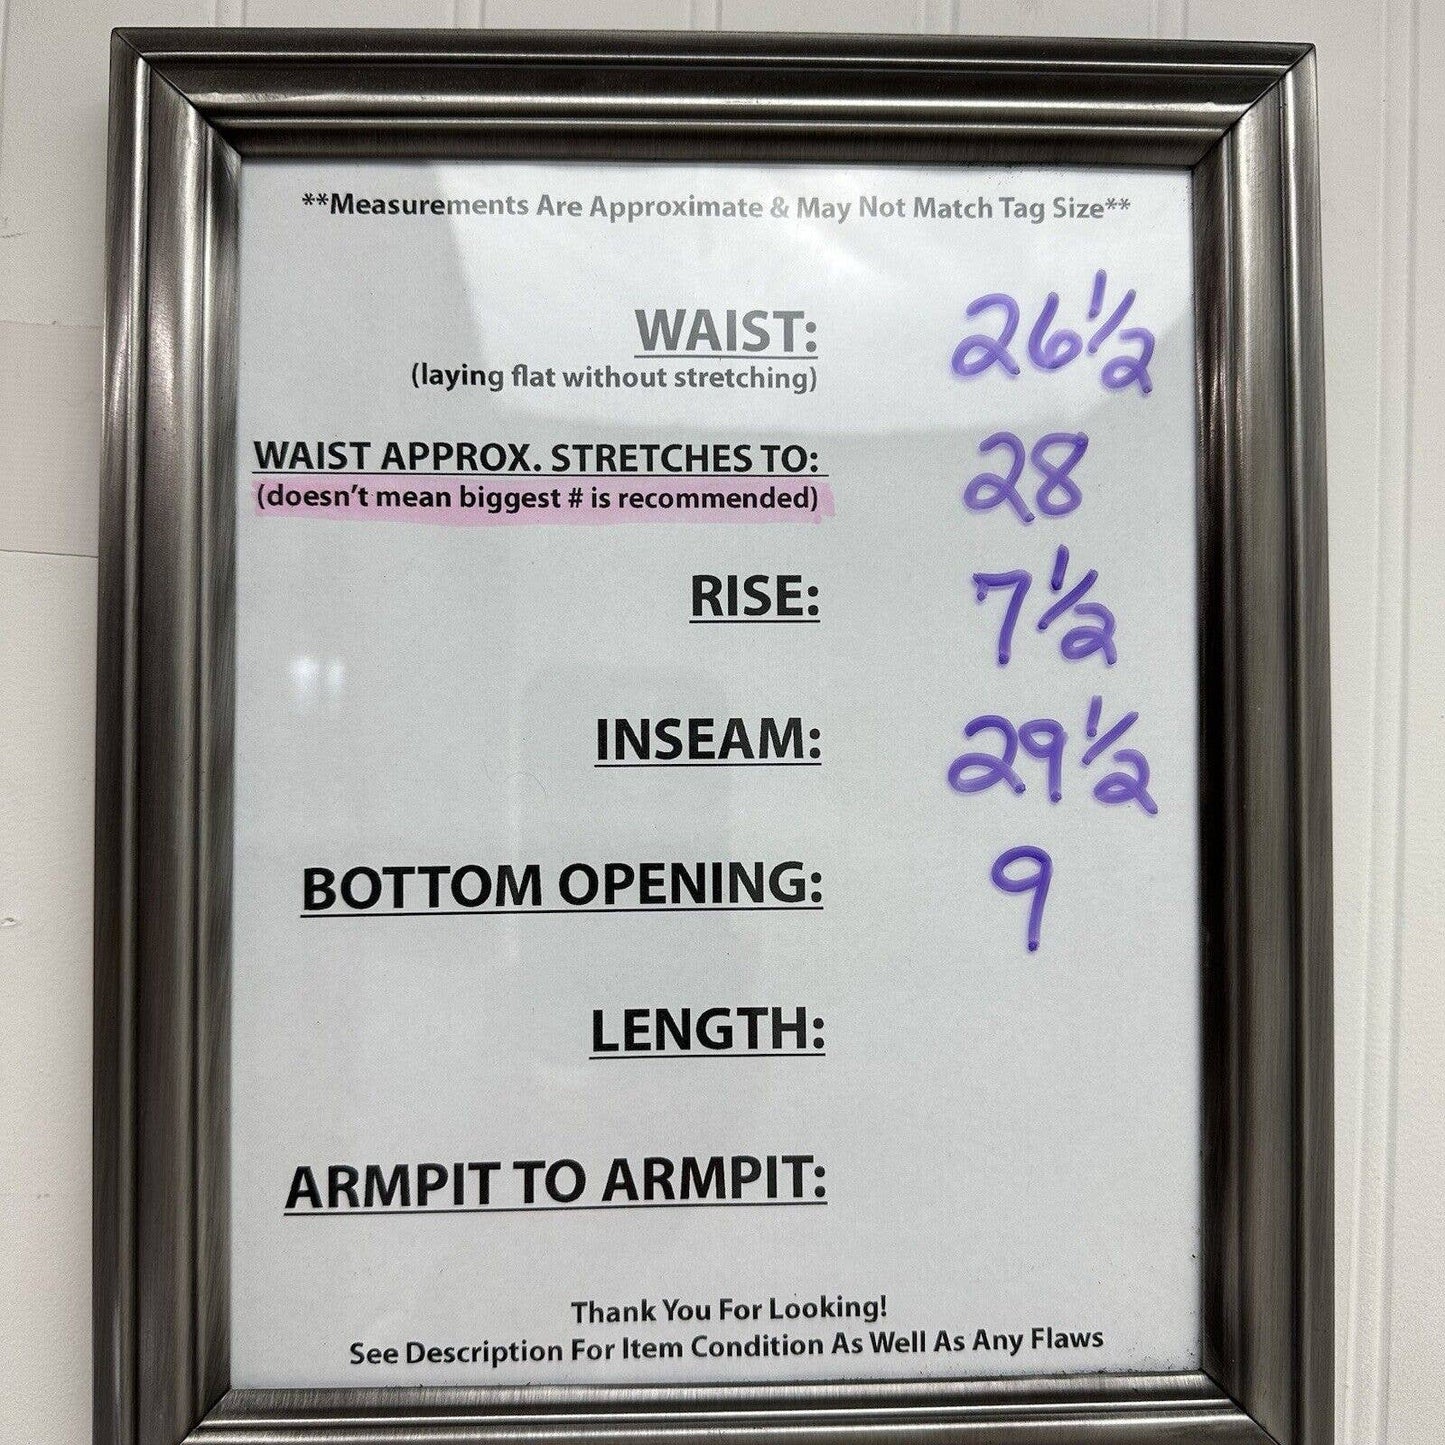 **Measurements Are Approximate & May Not Match Tag Size**
WAIST: 26 1/2
(laying flat without stretching)
WAIST APPROX. STRETCHES TO: 28
(doesn't mean biggest # is recommended)
RISE: 7 1/2
INSEAM: 29 1/2
BOTTOM OPENING: 9
LENGTH:
ARMPIT TO ARMPIT:
Thank You For Looking!
See Description For Item Condition As Well As Any Flaws